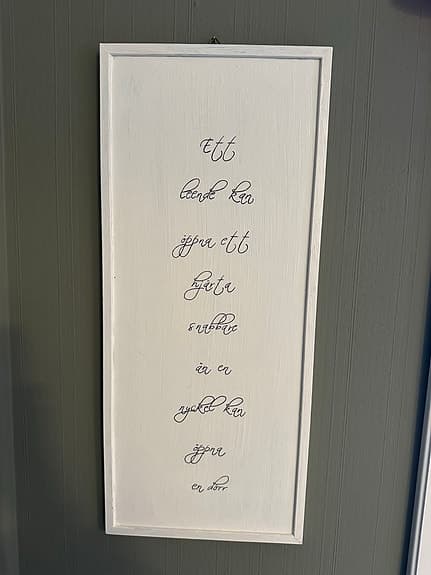 Ett
leende kan
öppna ett
hjärta
snabbare
än en
nyckel kan
öppna
en dörr